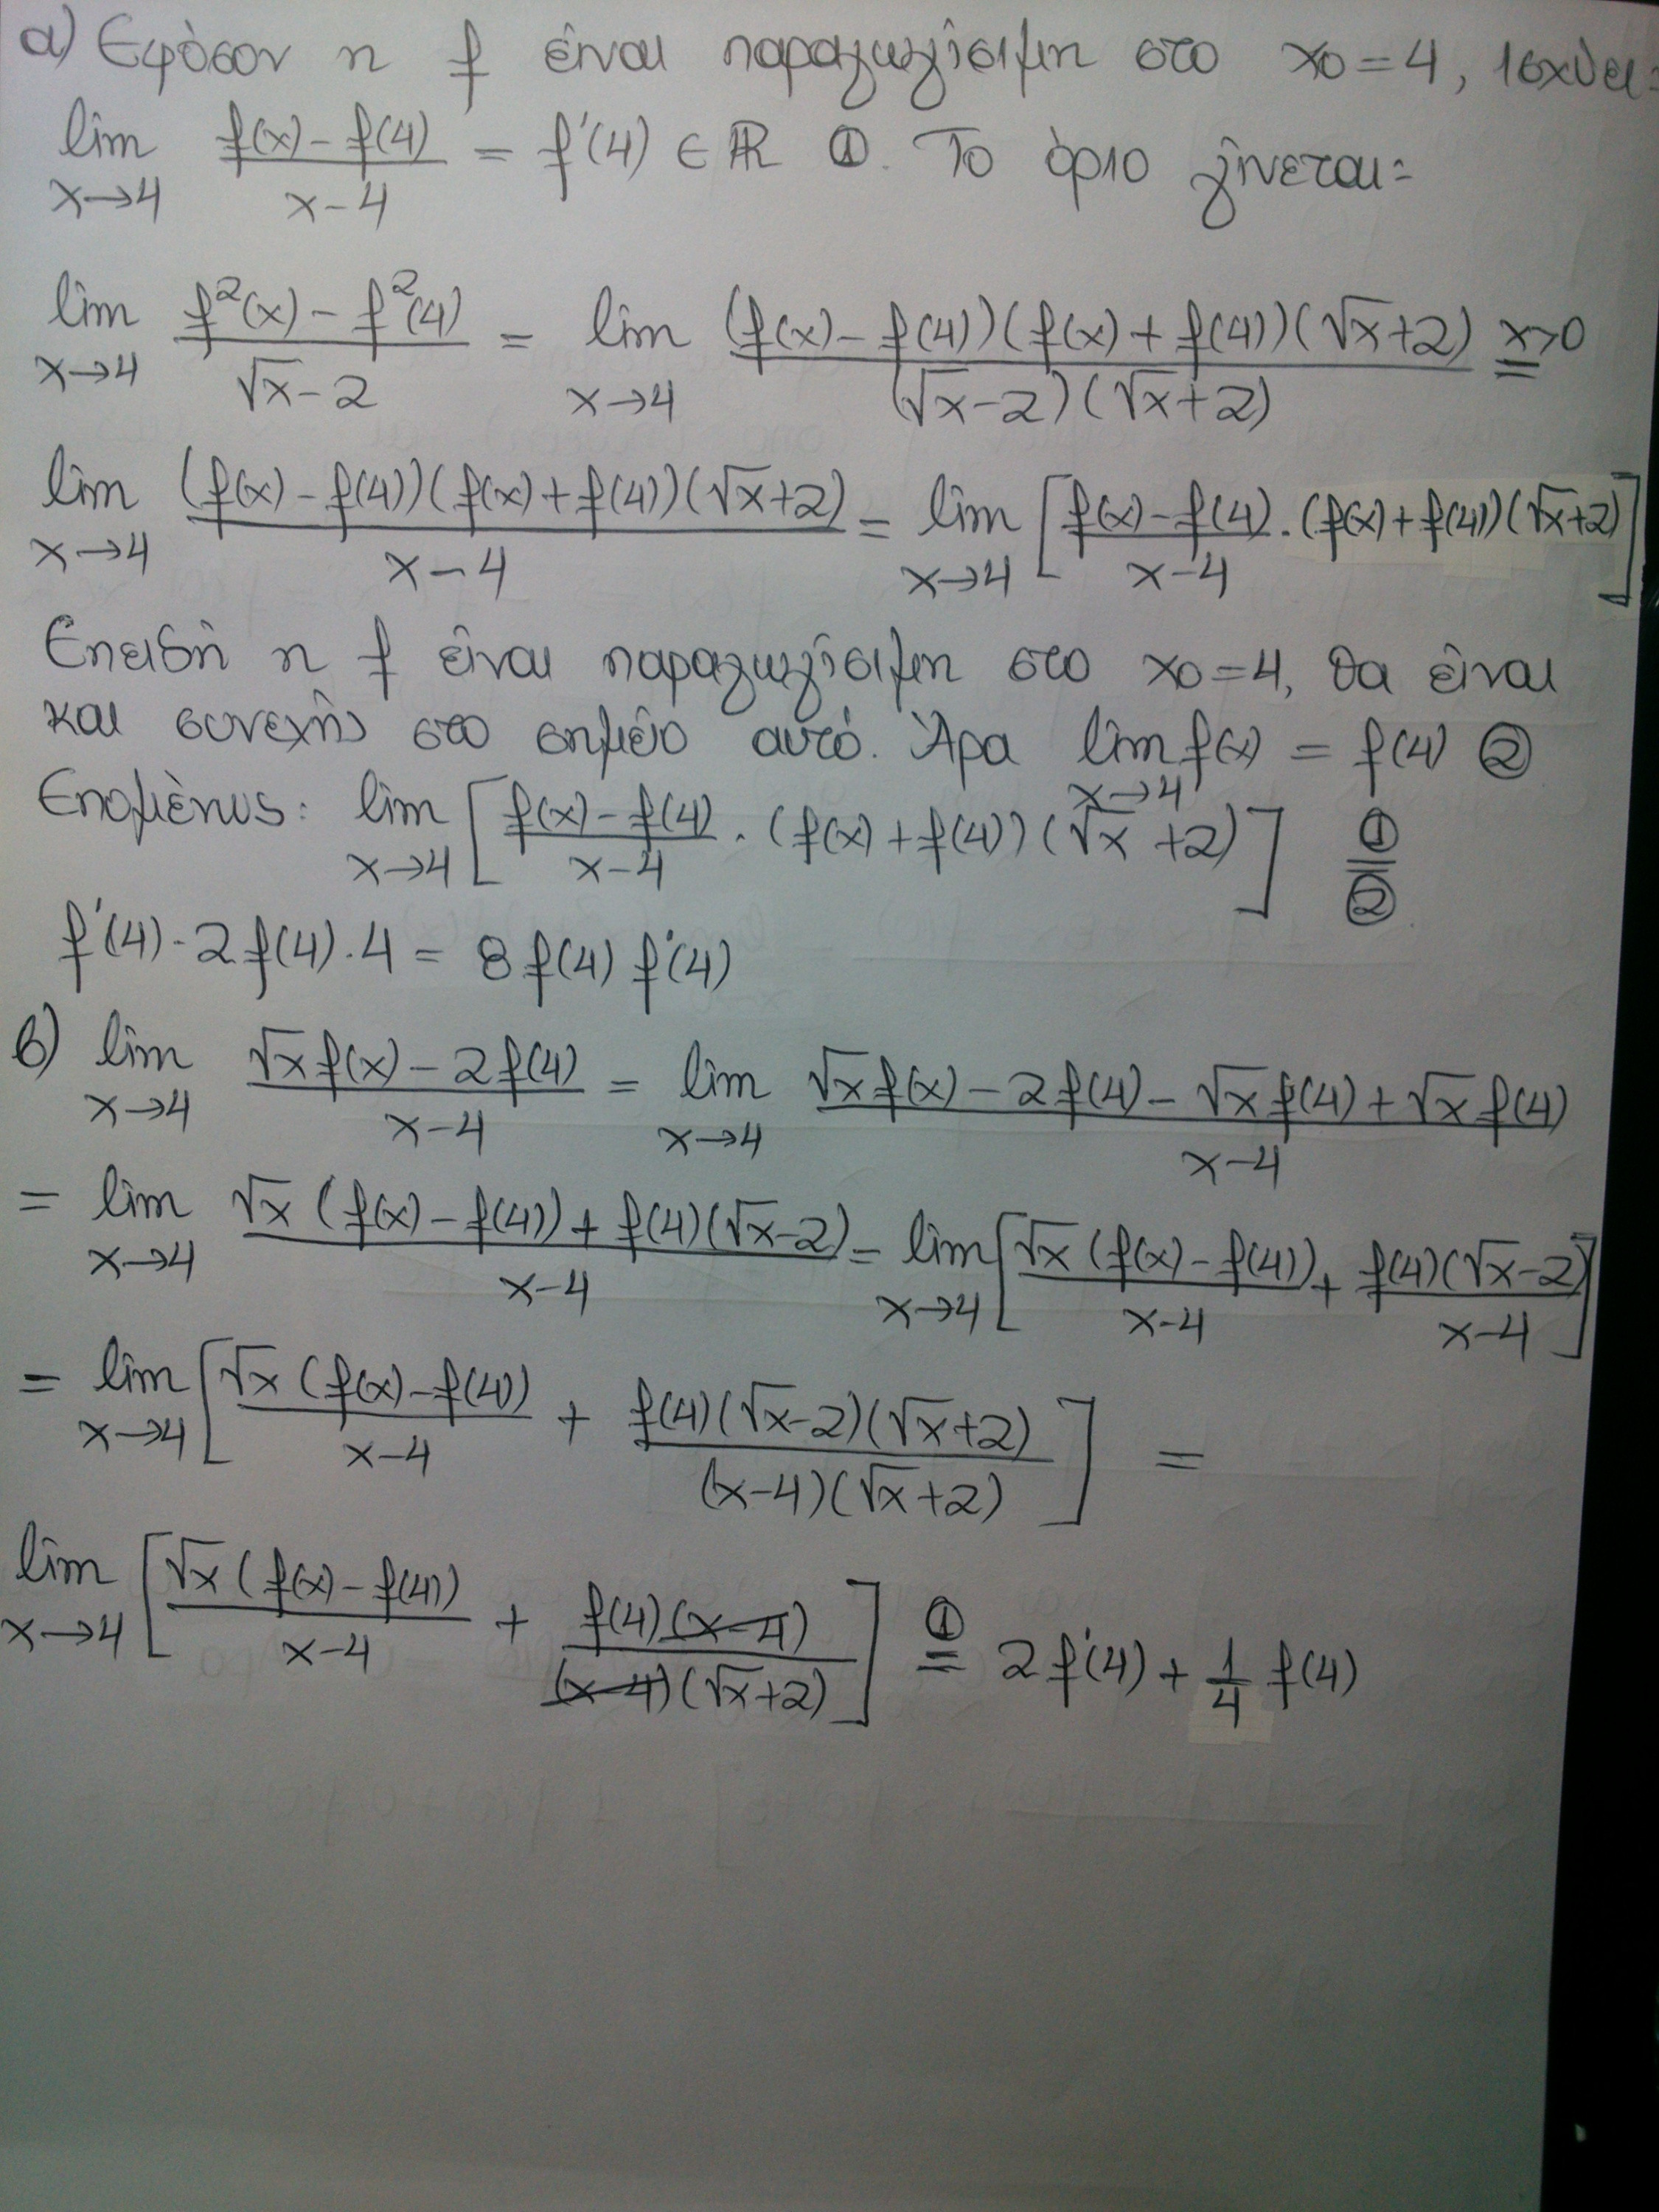 α) Εφόσον η f είναι παραγωγίσιμη στο x₀ = 4, ισχύει:
lim_{x→4} (f(x) - f(4))/(x - 4) = f'(4) ∈ ℝ ①. Το όριο γίνεται:
lim_{x→4} (f²(x) - f²(4))/(√x - 2) = lim_{x→4} ((f(x) - f(4))(f(x) + f(4))(√x + 2))/((√x - 2)(√x + 2)) =^{x>0}
lim_{x→4} ((f(x) - f(4))(f(x) + f(4))(√x + 2))/(x - 4) = lim_{x→4} [(f(x) - f(4))/(x - 4) · (f(x) + f(4))(√x + 2)]
Επειδή η f είναι παραγωγίσιμη στο x₀ = 4, θα είναι
και συνεχής στο σημείο αυτό. Άρα lim_{x→4} f(x) = f(4) ②
Επομένως: lim_{x→4} [(f(x) - f(4))/(x - 4) · (f(x) + f(4))(√x + 2)] =^{①}_{②}
f'(4) · 2f(4) · 4 = 8f(4)f'(4)
β) lim_{x→4} (√x f(x) - 2f(4))/(x - 4) = lim_{x→4} (√x f(x) - 2f(4) - √x f(4) + √x f(4))/(x - 4)
= lim_{x→4} (√x (f(x) - f(4)) + f(4)(√x - 2))/(x - 4) = lim_{x→4} [(√x (f(x) - f(4)))/(x - 4) + (f(4)(√x - 2))/(x - 4)]
= lim_{x→4} [(√x (f(x) - f(4)))/(x - 4) + (f(4)(√x - 2)(√x + 2))/((x - 4)(√x + 2))] =
lim_{x→4} [(√x (f(x) - f(4)))/(x - 4) + (f(4)(x - 4))/((x - 4)(√x + 2))] =^{①} 2f'(4) + 1/4 f(4)